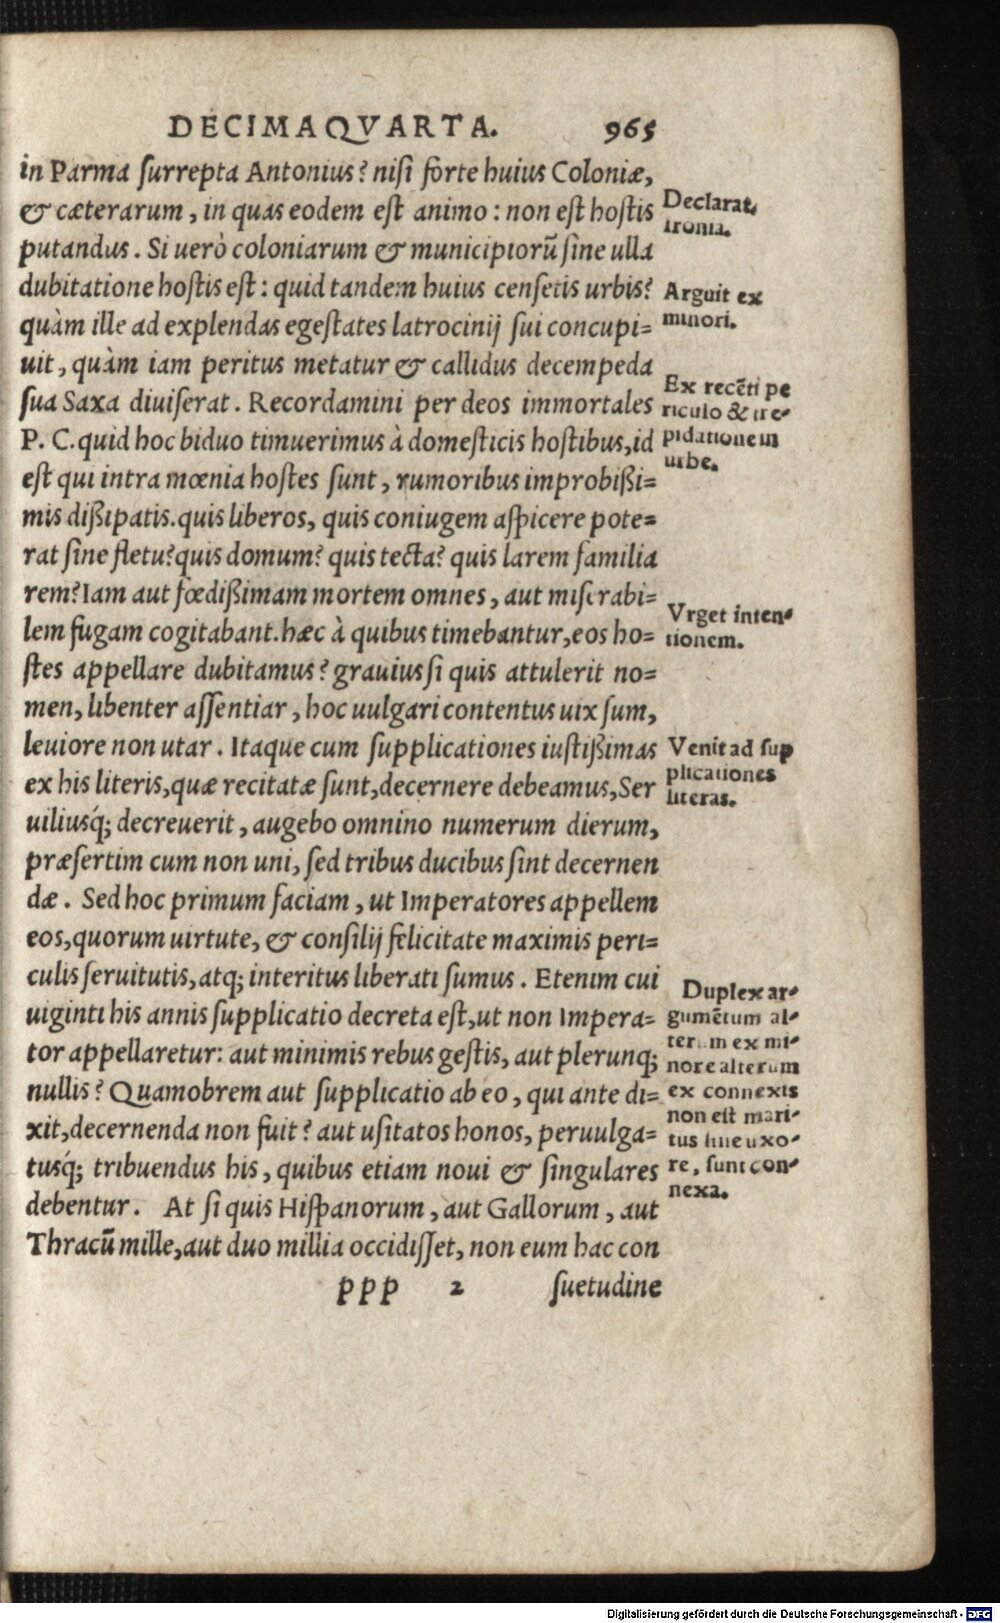 DECIMAQVARTA. 965
in Parma ſurrepta Antonius? niſi forte huius Coloniæ,
& cæterarum, in quas eodem eſt animo: non eſt hoſtis
putandus. Si uerò coloniarum & municipiorũ ſine ulla
dubitatione hoſtis eſt: quid tandem huius cenſetis urbis?
quàm ille ad explendas egeſtates latrocinij ſui concupi=
uit, quàm iam peritus metatur & callidus decempeda
ſua Saxa diuiſerat. Recordamini per deos immortales
P. C. quid hoc biduo timuerimus à domeſticis hoſtibus, id
eſt qui intra mœnia hoſtes ſunt, rumoribus improbißi=
mis dißipatis. quis liberos, quis coniugem aſpicere pote=
rat ſine fletu? quis domum? quis tecta? quis larem familia
rem? Iam aut fœdißimam mortem omnes, aut miſerabi=
lem fugam cogitabant. hæc à quibus timebantur, eos ho=
ſtes appellare dubitamus? grauius ſi quis attulerit no=
men, libenter aſſentiar, hoc uulgari contentus uix ſum,
leuiore non utar. Itaque cum ſupplicationes iuſtißimas
ex his literis, quæ recitatæ ſunt, decernere debeamus, Ser
uiliusq́; decreuerit, augebo omnino numerum dierum,
præſertim cum non uni, ſed tribus ducibus ſint decernen
dæ. Sed hoc primum faciam, ut Imperatores appellem
eos, quorum uirtute, & conſilij felicitate maximis peri=
culis ſeruitutis, atq; interitus liberati ſumus. Etenim cui
uiginti his annis ſupplicatio decreta eſt, ut non Impera=
tor appellaretur: aut minimis rebus geſtis, aut plerunq;
nullis? Quamobrem aut ſupplicatio ab eo, qui ante di=
xit, decernenda non fuit? aut uſitatos honos, peruulga=
tusq́; tribuendus his, quibus etiam noui & ſingulares
debentur. At ſi quis Hiſpanorum, aut Gallorum, aut
Thracũ mille, aut duo millia occidiſſet, non eum hac con
ppp 2 ſuetudine
Declarat,
ironia.
Arguit ex
minori.
Ex recẽti pe
riculo & tre-
pidatione in
urbe.
Vrget inten-
tionem.
Venit ad ſup
plicationes
literas.
Duplex ar-
gumẽtum al-
terum ex mi-
nore alterum
ex connexis
non eſt mari-
tus ſine uxo-
re, ſunt con-
nexa.
Digitalisierung gefördert durch die Deutsche Forschungsgemeinschaft - DFG